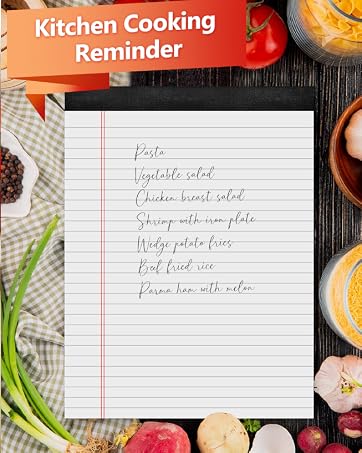 Kitchen Cooking
Reminder
Pasta
Vegetable salad
Chicken breast salad
Shrimp with iron plate
Wedge potato fries
Beef fried rice
Parma ham with melon